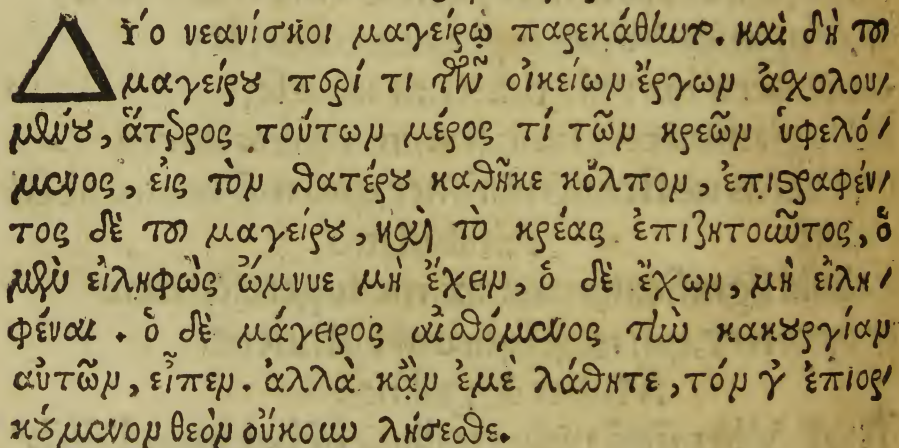 ΔΎο νεανίσκοι μαγείρῳ παρεκάθηντο. καὶ δὴ τοῦ
μαγείρου περί τι τῶν οἰκείων ἔργων ἀσχολου/
μένου, ἅτερος τούτων μέρος τί τῶν κρεῶν ὑφελό/
μενος, εἰς τὸν θατέρου καθῆκε κόλπον, ἐπιστραφέν/
τος δὲ τοῦ μαγείρου, καὶ τὸ κρέας ἐπιζητοῦντος, ὁ
μὲν εἰληφὼς ὤμνυε μὴ ἔχειν, ὁ δὲ ἔχων, μὴ εἰλη/
φέναι. ὁ δὲ μάγειρος αἰσθόμενος τὴν κακουργίαν
αὐτῶν, εἶπεν. ἀλλὰ κἂν ἐμὲ λάθητε, τόν γ' ἐπιορ/
κούμενον θεὸν οὔκουν λήσεσθε.